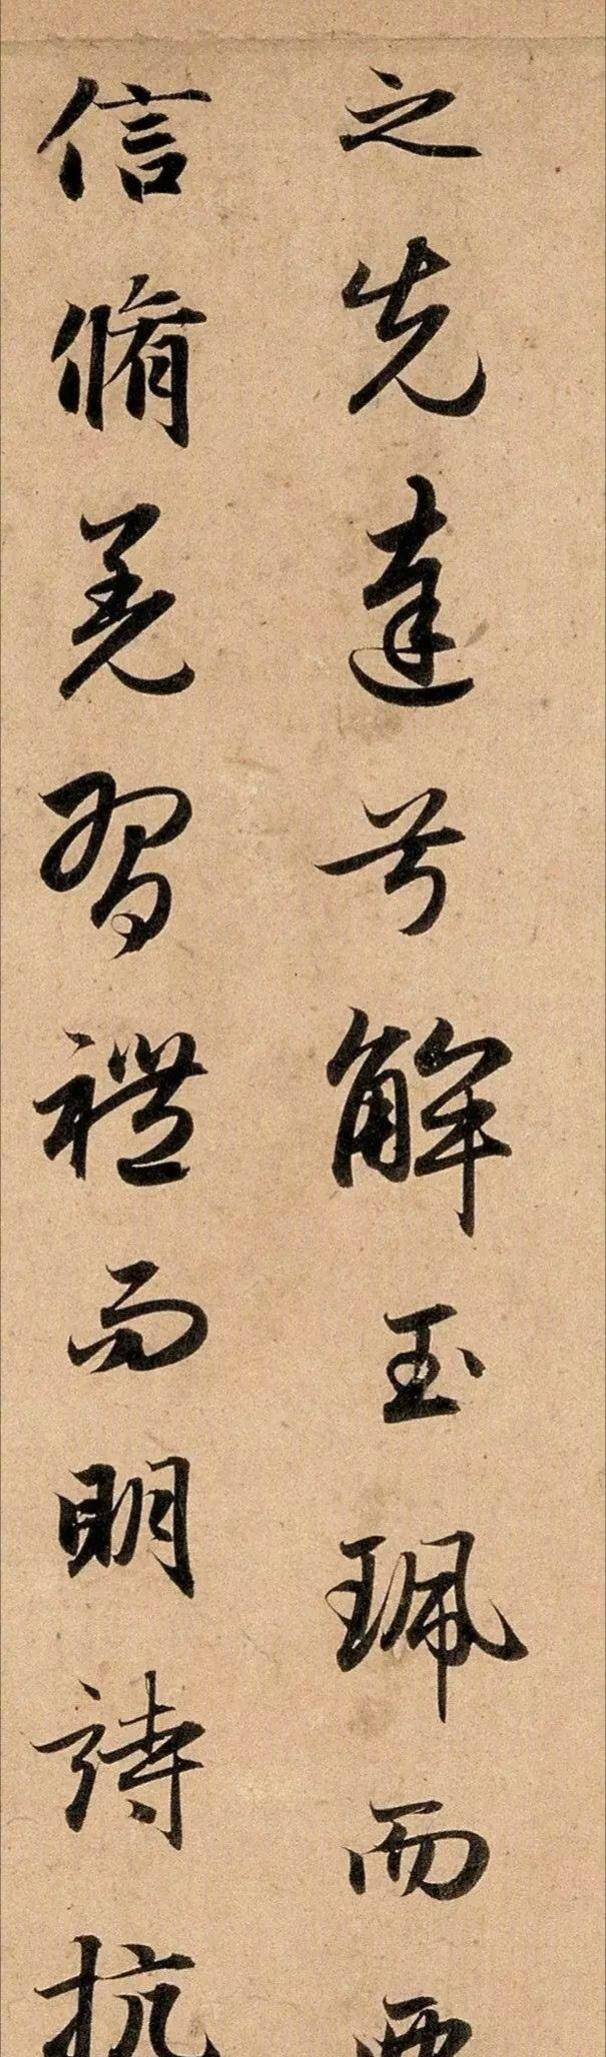 之先达兮解玉珮而要
信脩羌習禮而明詩抗